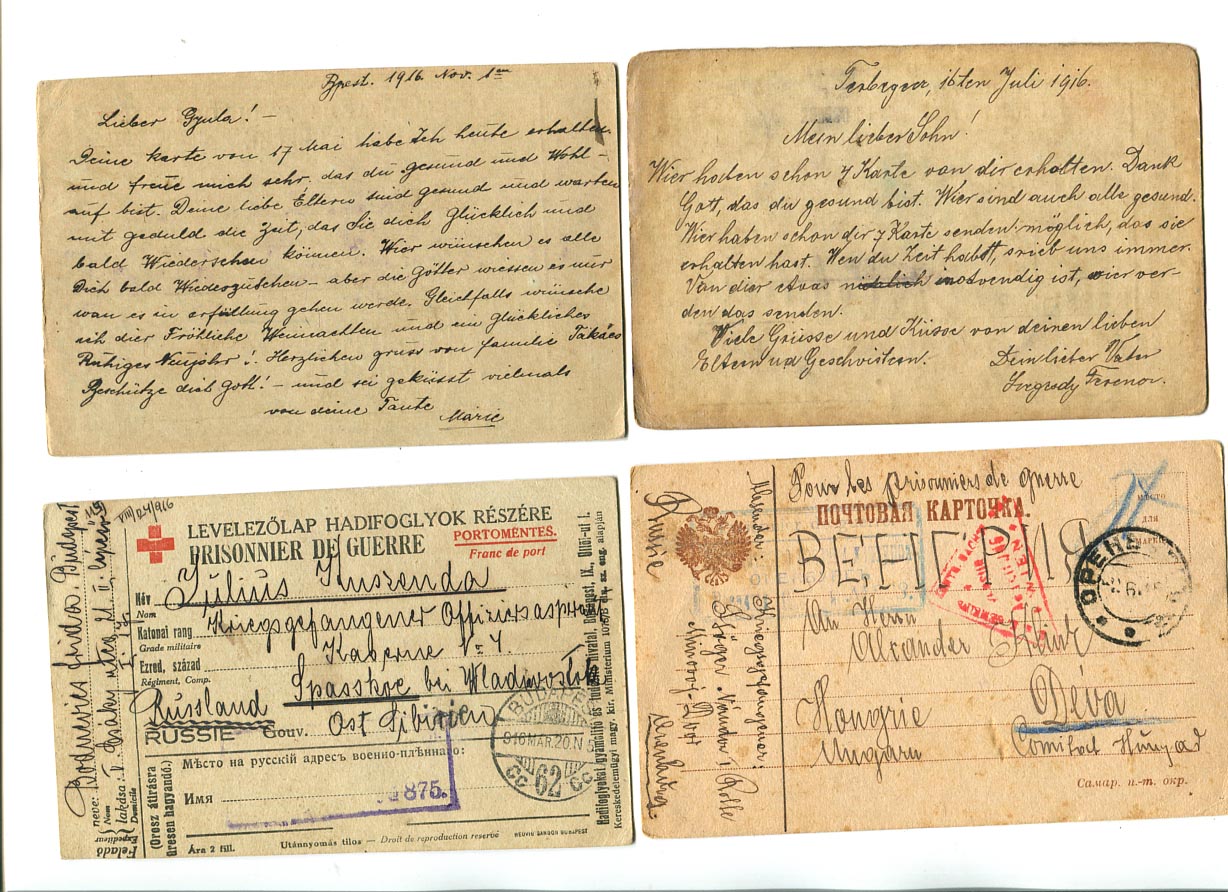 Bpest. 1916. Nov. 1
Lieber Gyula! –
Deine karte von 17 Mai habe Ich heute erhalten
und freue mich sehr, das du gesund und Wohl –
auf bist. Deine liebe Eltern sind gesund und warten
mit geduld die Zeit, das Sie dich Glücklich und
bald Wiedersehen können. Wier wünschen es alle
Dich bald Wiederzusehen – aber die Götter wiessen es nur
wan es in erfüllung gehen werde. Gleichfalls wünsche
ich dier Fröhliche Weinachten und ein glückliches
Ruhiges Neujahr! Herzlichen gruss von familie Takács
Beschütze dich Gott! – und sei geküsst vielmals
von deine Tante
Marie
16ten Juli 1916.
Mein lieber Sohn!
Wier haben schon 7 Karte von dir erhalten. Dank
Gott, das du gesund bist. Wier sind auch alle gesund.
Wier haben schon dir 7 Karte senden: möglich, das sie
erhalten hast. Wen du Zeit habst, srieb uns immer.
Van dier etvas notvendig ist, wier ver-
den das senden.
Viele Grüsse und Küsse von deinen lieben
Eltern und Geschvistern. Dein lieber Vater
Szegedy Ferencz.
VIII/24/916
LEVELEZŐLAP HADIFOGLYOK RÉSZÉRE
PRISONNIER DE GUERRE
PORTÓMENTES.
Franc de port
Név
Nom
Julius
Katonai rang
Grade militaire
Kriegsgefangener Offiziersaspirant
Ezred, század
Régiment, Comp.
Kaserne No 7
Spasskoe bei Wladiwostok
Russland
RUSSIE Gouv. Ost Sibirien
Мѣсто на русскiй адресъ военно-плѣннаго:
Имя
875.
BUDAPEST
916 MÁR. 20. N 5
CC 62 CC
Ára 2 fill.
Utánnyomás tilos — Droit de reproduction reservé
NEUVIN SÁNDOR BUDAPEST
Feladó
Expéditeur
neve:
Nom
lakása:
Domicile
Frida Budapest
(Orosz átírásra
üresen hagyandó.)
Pour les prisonniers de guerre
ПОЧТОВАЯ КАРТОЧКА.
ВЕНГРИЯ
МѢСТО
ДЛЯ
МАРКИ
An Herrn
Alexander
Hongrie
Ungarn
Déva
Comitat Húnyad
Самар. п.-т. окр.
Russie
Absender: Kriegsgefangener:
Nándor
Orenburg